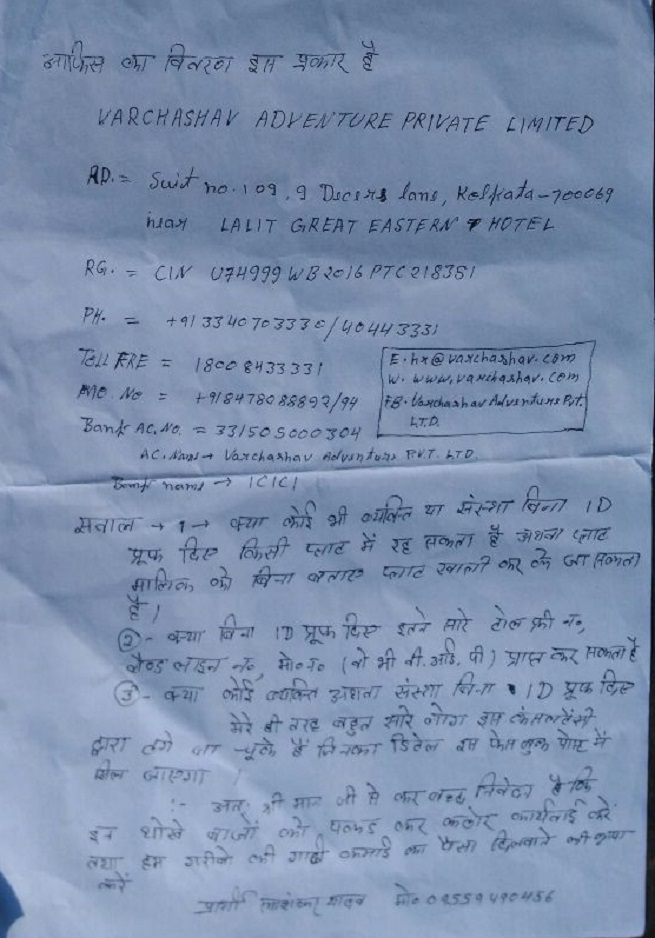 आफिस का विवरण इस प्रकार है
VARCHASHAV ADVENTURE PRIVATE LIMITED
AD. = Suit no. 109, 9 Decers lane, Kolkata - 700069
near LALIT GREAT EASTERN HOTEL
RG. = CIN U74999WB2016PTC218351
PH. = +913340703330/40443331
Toll FRE = 18008433331
Mo. No = +918478088892/94
E. hr@varchashav.com
W. www.varchashav.com
FB. Varchashav Adventures Pvt.
LTD.
Bank AC. No. = 331505000304
AC. Name → Varchashav Adventure PVT. LTD.
Bank name → ICICI
सवाल → 1 → क्या कोई भी व्यक्ति या संस्था बिना ID
प्रूफ दिए किसी प्लाट में रह सकता है अथवा प्लाट
मालिक को बिना बताए प्लाट खाली कर के जा सकता
है।
② - क्या बिना ID प्रूफ दिए इतने सारे टोल फ्री नं,
लैण्ड लाइन नं, मो० नं० (वो भी वी. आई. पी) प्राप्त कर सकता है
③ - क्या कोई व्यक्ति अथवा संस्था बिना ID प्रूफ दिए
मेरे ही तरह बहुत सारे लोग इस कंसल्टेंसी
द्वारा ठगे जा चुके हैं जिनका डिटेल इस फेस बुक पेज में
मिल जाएगा।
:- अतः श्री मान जी से कर बद्ध निवेदन है कि
इन धोखे बाजों को पकड़ कर कठोर कार्यवाई करें
तथा हम गरीबो की गाढ़ी कमाई का पैसा दिलवाने की कृपा
करें
प्रार्थी यादव मो० 09559490456